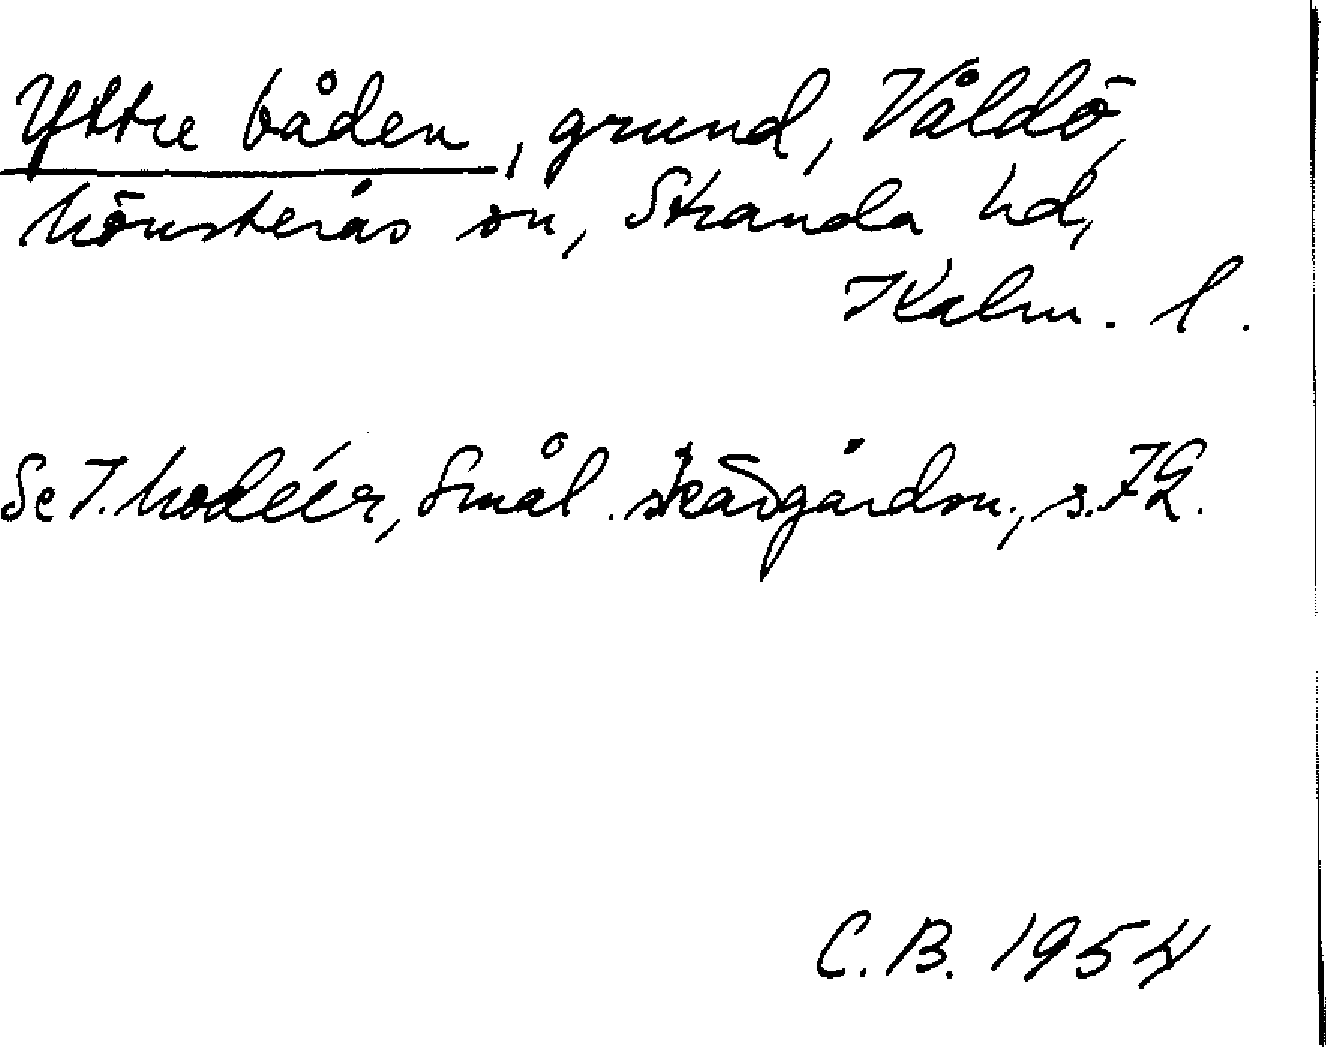 Yttre båden, grund, Våldö,
Mönsterås sn, Stranda hd,
Kalm. l.
Se I. Modéer, Smål. skärgårdsn., s. 72.
C.B. 1954